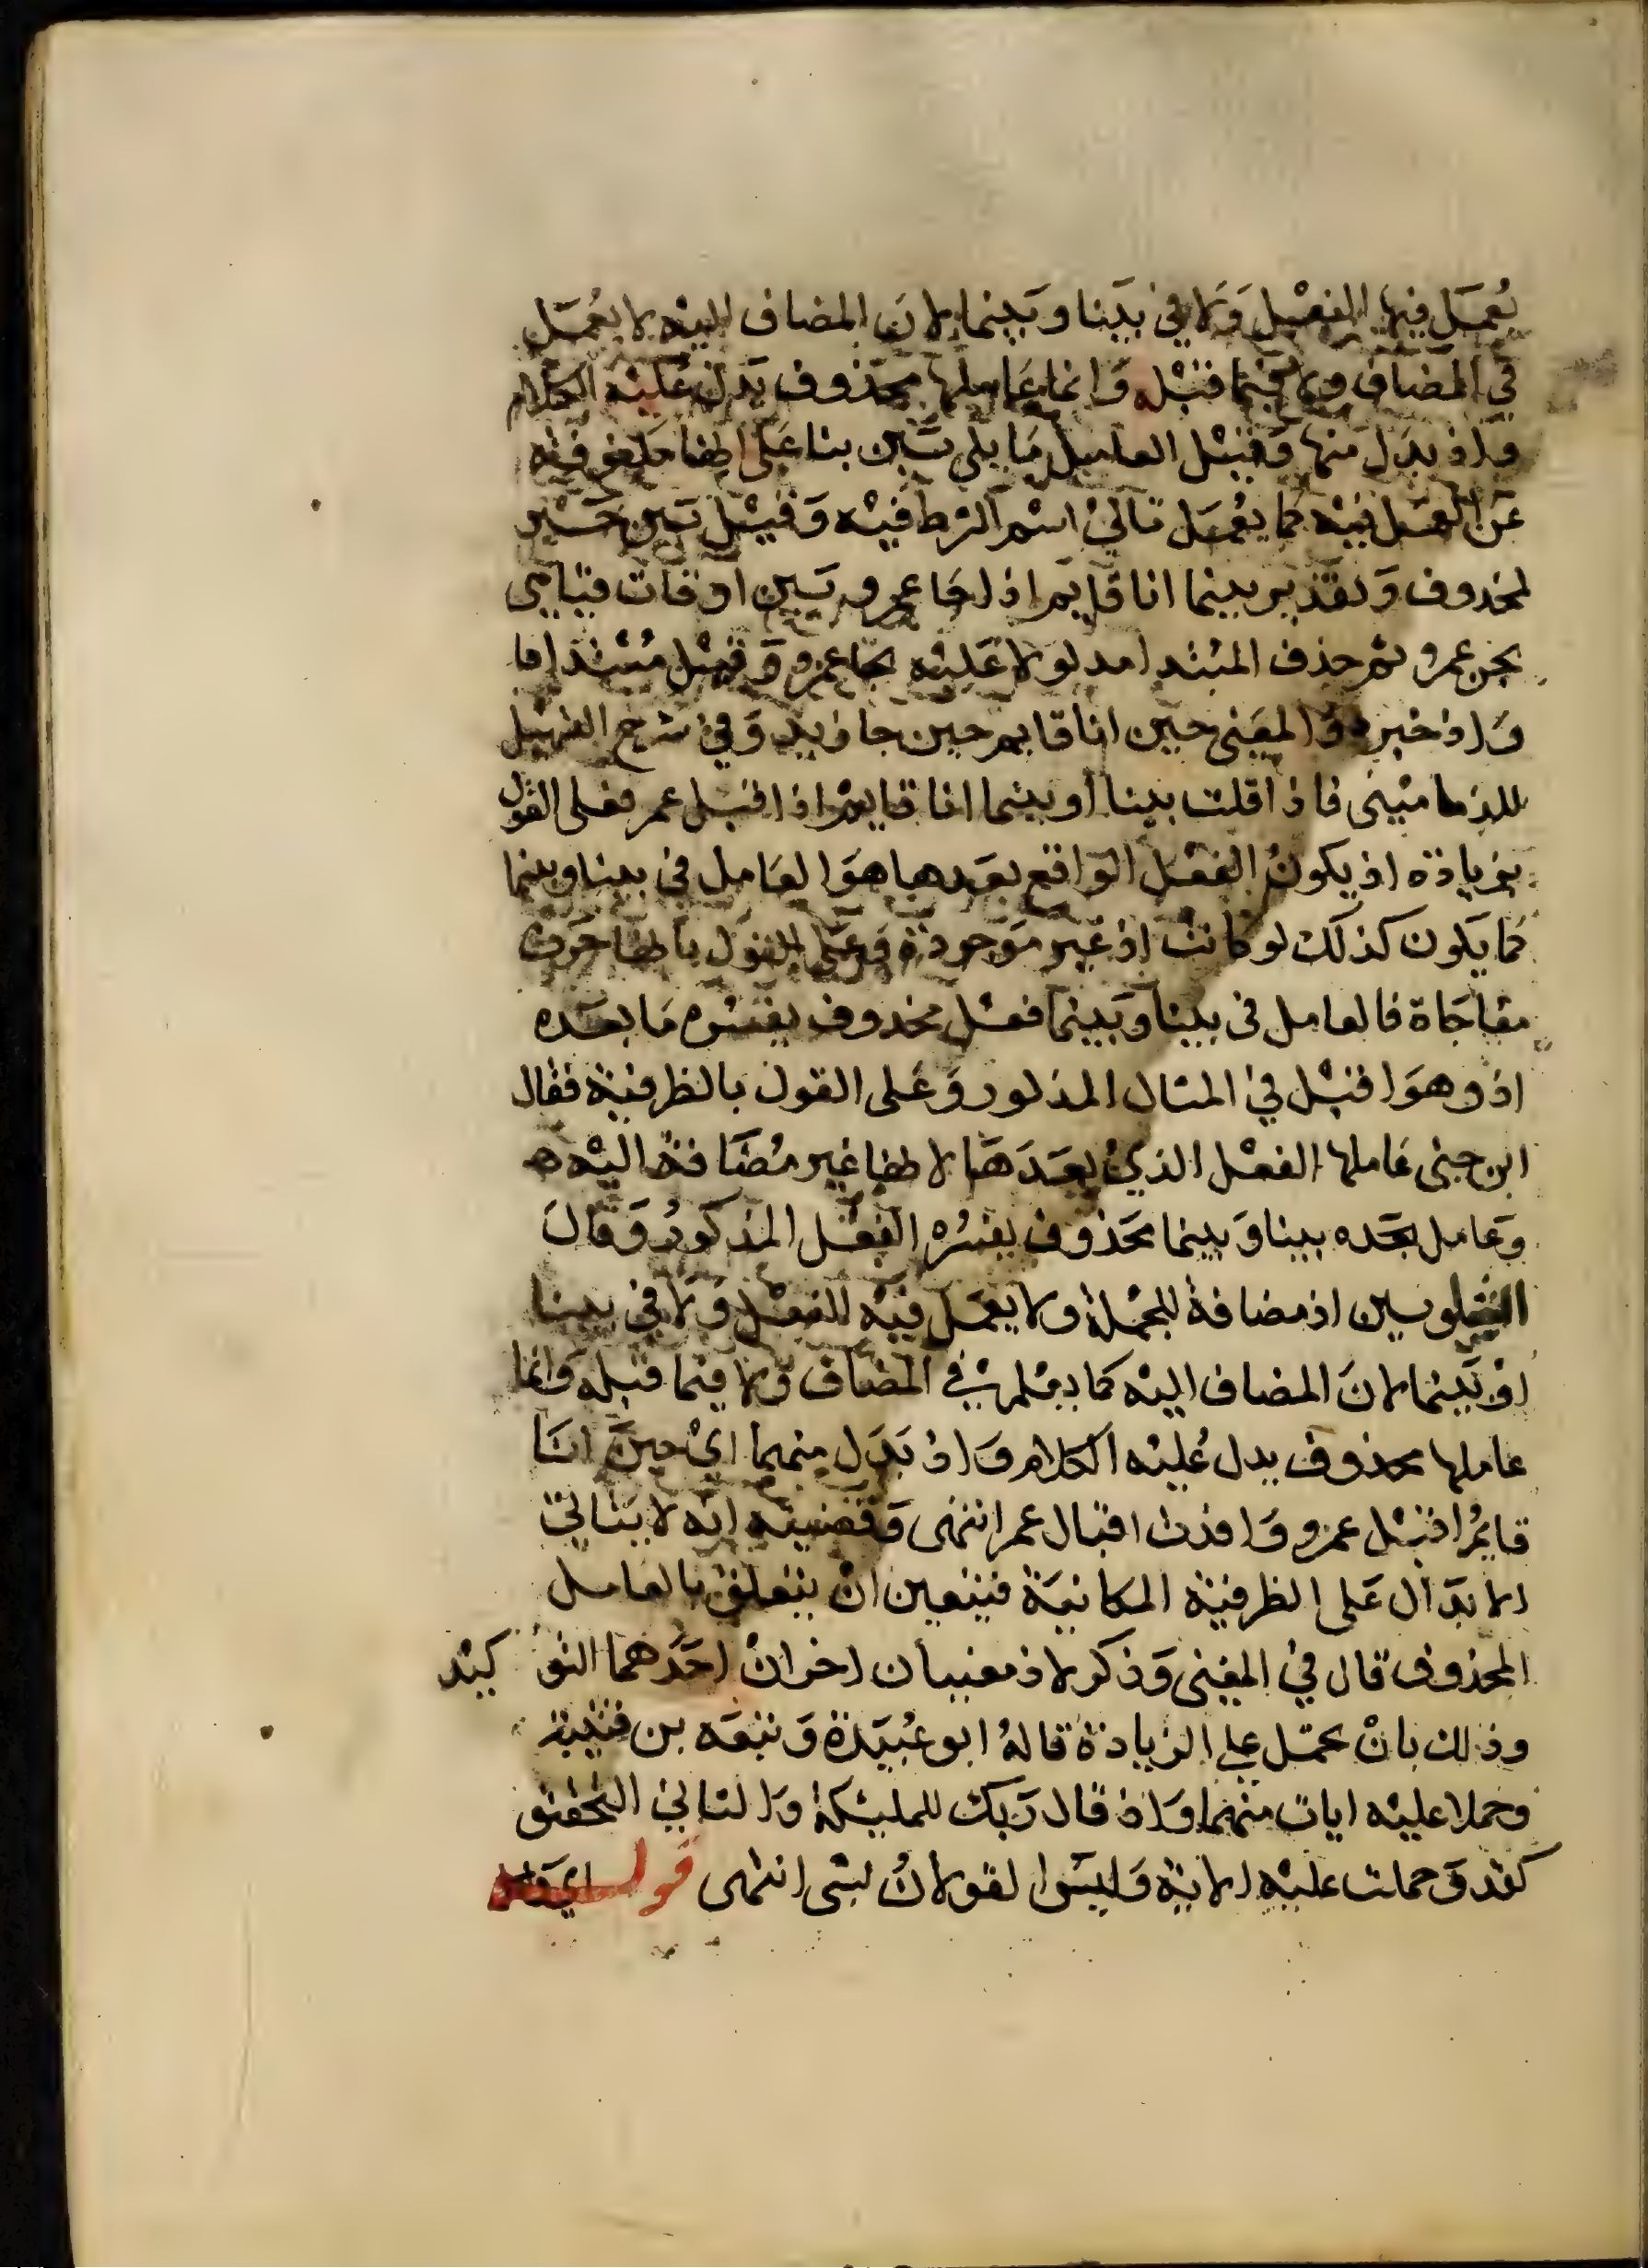 يعمل فيها الفعل ولا في بينا وبينما لان المضاف اليه لا يعمل
في المضاف ولا فيما قبله وانما عاملها محذوف يدل عليه الكلام
واذ بدل منها وقيل العامل ما يلي بين بنا على اطفا
عن العمل فيه كما يعمل تالي اسم الشرط فيه وقيل بين خبر
لمحذوف وتقدير بينما انا قايم اذ جا عمرو بين اوقات قيامي
مجي عمرو ثم حذف المبتدا مدلولا عليه بجا عمرو وقيل مبتدا
واذ خبره والمعنى حين انا قايم حين جا زيد وفي شرح التسهيل
للدماميني فاذا قلت بينا أو بينما انا قايم اذ اقبل عمر فعلى القول
بزيادة اذ يكون الفعل الواقع بعدها هو العامل في بينا وبينما
كما يكون كذلك لو كانت اذ غير موجودة وعلى القول باطفا حرف
مفاجاة فالعامل في بينا وبينما فعل محذوف يفسره ما بعده
اذ وهو اقبل في المثال المذكور وعلى القول بالظرفية فقال
ابن جني عاملها الفعل الذي بعدها لاطفا غير مضافة اليه
وعامل بعده بينا وبينما محذوف يفسره الفعل المذكور وقال
الشلوبين اذ مضافة للجملة ولا يعمل فيه الفعل ولا في بينا
او بينما لان المضاف اليه كما في المضاف ولا فيما قبله وانما
عاملها محذوف يدل عليه الكلام واذ بدل منهما اي حين انا
قايم اقبل عمرو وافدت اقبال عمر انتهى وقضيته انه لا يتاتى
الابدال على الظرفية المكانية فيتعين ان يتعلق بالعامل
المحذوف قال في المغنى وذكر لاذ معنيان اخران احدهما التو كيد
وذلك بان يحمل على الزيادة قاله ابو عبيدة وتبعه بن قتيبة
وحملا عليه ايات منهما واذ قال ربك للمليكة والثاني التحقيق
كقد وحملت عليه الاية وليسوا لقولان لشي انتهى قولـــه